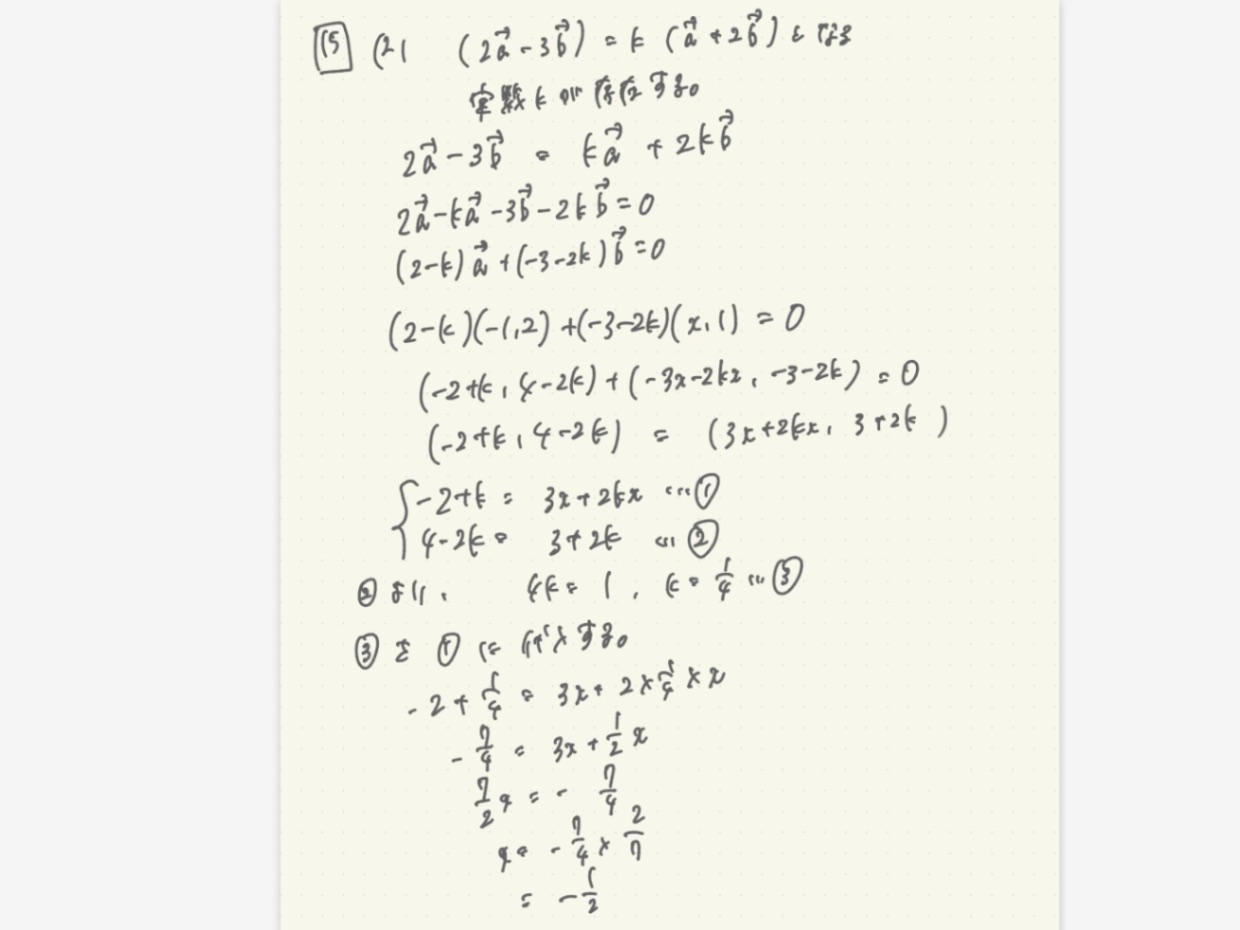 15 (2) (2a⃗-3b⃗) = k (a⃗+2b⃗) となる
実数kが存在する。
2a⃗-3b⃗ = ka⃗ + 2kb⃗
2a⃗-ka⃗-3b⃗-2kb⃗=0
(2-k)a⃗+(-3-2k)b⃗=0
(2-k)(-1,2)+(-3-2k)(x,1) = 0
(-2+k, 4-2k)+(-3x-2kx, -3-2k) = 0
(-2+k, 4-2k) = (3x+2kx, 3+2k)
{-2+k = 3x+2kx …①
4-2k = 3+2k …②
②より, 4k=1, k=1/4 …③
③を①に代入する。
-2+1/4 = 3x+2×1/4×x
-7/4 = 3x+1/2x
7/2x = -7/4
x= -7/4×2/7
= -1/2